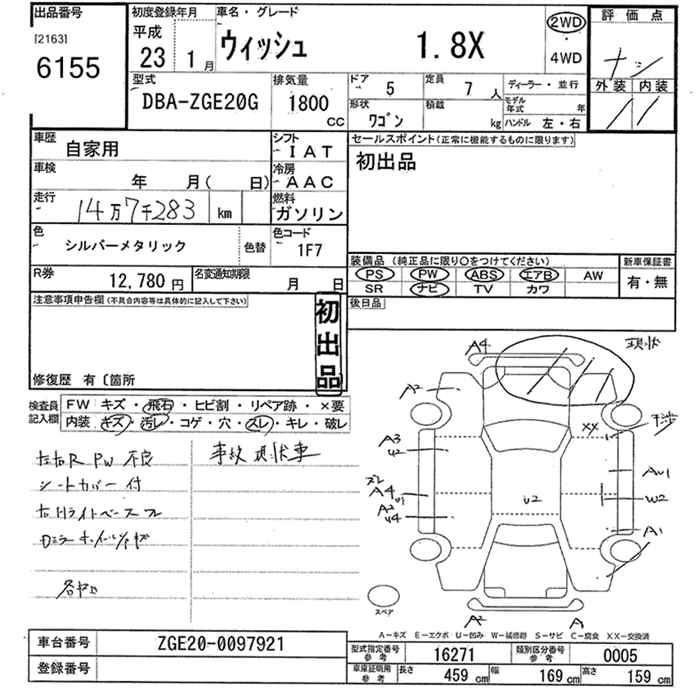 出品番号
[2163]
6155
初度登録年月
平成
23 1 月
車名・グレード
ウィッシュ 1.8X
2WD
・
4WD
評価点
外装 内装
型式
DBA-ZGE20G
排気量
1800
CC
ドア 5
定員 7 人
ディーラー・並行
形状 ワゴン
積載 kg
モデル年式 年
ハンドル 左・右
車歴 自家用
シフト
I A T
セールスポイント(正常に機能するものに限ります)
初出品
車検 年 月( 日)
冷房
A A C
走行 14万7千283 km
燃料
ガソリン
色 シルバーメタリック 色替
色コード
1F7
装備品 (純正品に限り○をつけてください)
PS PW ABS エアB AW
SR ナビ TV カワ
新車保証書
有・無
R券 12,780 円
名変通知期限 月 日
後日品
注意事項申告欄(不具合内容等は具体的に記入して下さい)
初出品
修復歴 有〔箇所
検査員記入欄
FW キズ・飛石・ヒビ割・リペア跡・×要
内装 キズ・汚レ・コゲ・穴・スレ・キレ・破レ
左右R PW 不良
シートカバー付
事故現状車
現状
A4
A2
A3
U2
XX
干渉
スレ
A4
U1
A2
U4
U2
W2
A1
スペア
A2
A
A-キズ E-エクボ U-凹み W-補修跡 S-サビ C-腐食 XX-交換済
車台番号 ZGE20-0097921
登録番号
型式指定番号 参考 16271
類別区分番号 参考 0005
車庫証明用 参考 長さ 459 cm 幅 169 cm 高さ 159 cm